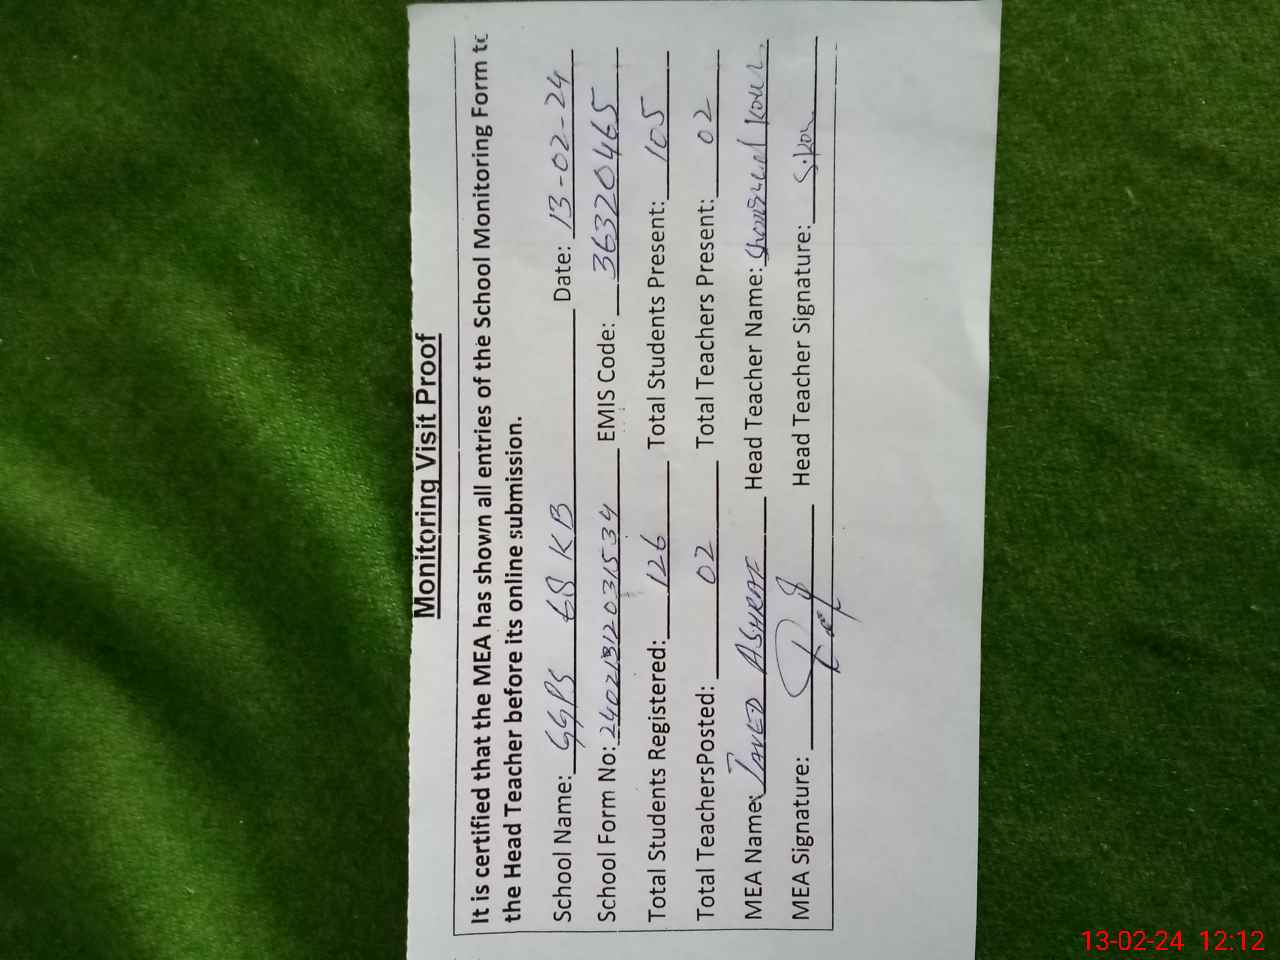 Monitoring Visit Proof
It is certified that the MEA has shown all entries of the School Monitoring Form to
the Head Teacher before its online submission.
School Name: GGPS 68 KB Date: 13-02-24
School Form No: EMIS Code: 36320465
Total Students Registered: 126 Total Students Present: 105
Total TeachersPosted: 02 Total Teachers Present: 02
MEA Name: JAVED ASHRAF Head Teacher Name:
MEA Signature: Head Teacher Signature:
13-02-24 12:12